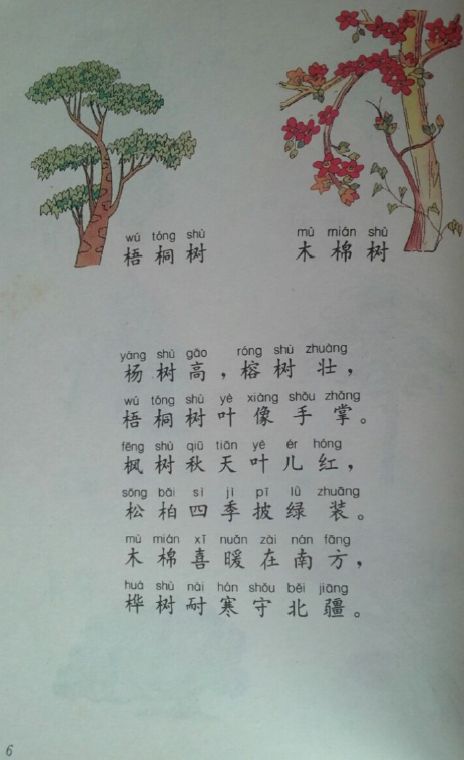 wú tóng shù
梧桐树
mù mián shù
木棉树
yáng shù gāo， róng shù zhuàng
杨树高，榕树壮，
wú tóng shù yè xiàng shǒu zhǎng
梧桐树叶像手掌。
fēng shù qiū tiān yè ér hóng
枫树秋天叶儿红，
sōng bǎi sì jì pī lǜ zhuāng
松柏四季披绿装。
mù mián xǐ nuǎn zài nán fāng
木棉喜暖在南方，
huà shù nài hán shǒu běi jiāng
桦树耐寒守北疆。
6